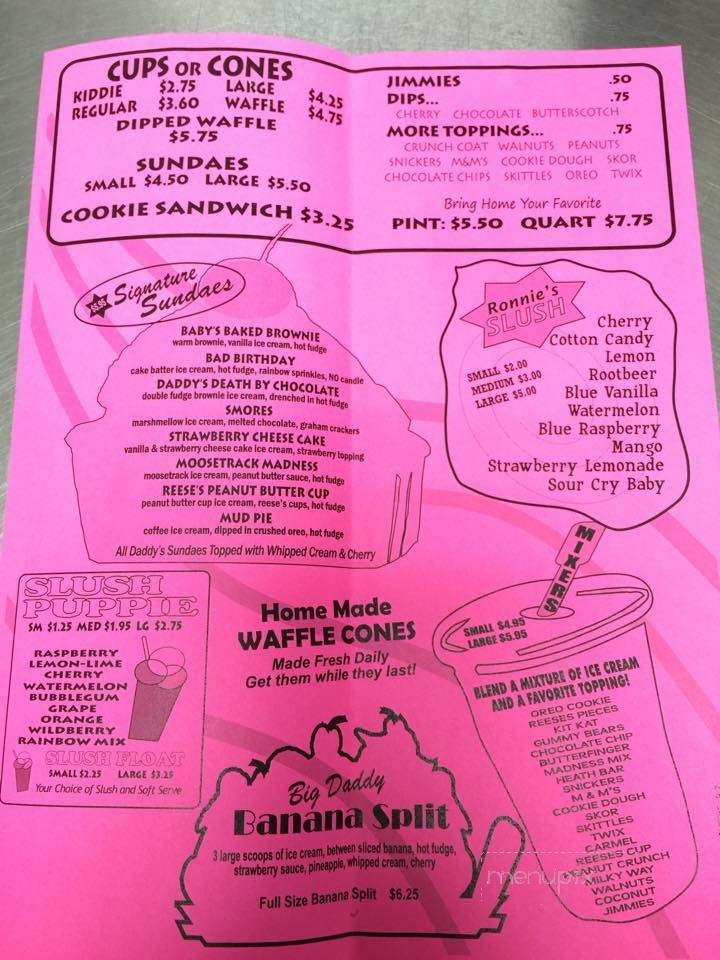 CUPS OR CONES
KIDDIE $2.75 LARGE $4.25
REGULAR $3.60 WAFFLE $4.75
DIPPED WAFFLE
$5.75
SUNDAES
SMALL $4.50 LARGE $5.50
COOKIE SANDWICH $3.25
JIMMIES .50
DIPS... .75
CHERRY CHOCOLATE BUTTERSCOTCH
MORE TOPPINGS... .75
CRUNCH COAT WALNUTS PEANUTS
SNICKERS M&M'S COOKIE DOUGH SKOR
CHOCOLATE CHIPS SKITTLES OREO TWIX
Bring Home Your Favorite
PINT: $5.50 QUART $7.75
Signature
Sundaes
BABY'S BAKED BROWNIE
warm brownie, vanilla ice cream, hot fudge
BAD BIRTHDAY
cake batter ice cream, hot fudge, rainbow sprinkles, NO candle
DADDY'S DEATH BY CHOCOLATE
double fudge brownie ice cream, drenched in hot fudge
SMORES
marshmellow ice cream, melted chocolate, graham crackers
STRAWBERRY CHEESE CAKE
vanilla & strawberry cheese cake ice cream, strawberry topping
MOOSETRACK MADNESS
moosetrack ice cream, peanut butter sauce, hot fudge
REESE'S PEANUT BUTTER CUP
peanut butter cup ice cream, reese's cups, hot fudge
MUD PIE
coffee ice cream, dipped in crushed oreo, hot fudge
All Daddy's Sundaes Topped with Whipped Cream & Cherry
Ronnie's
SLUSH
SMALL $2.00
MEDIUM $3.00
LARGE $5.00
Cherry
Cotton Candy
Lemon
Rootbeer
Blue Vanilla
Watermelon
Blue Raspberry
Mango
Strawberry Lemonade
Sour Cry Baby
SLUSH
PUPPIE
SM $1.25 MED $1.95 LG $2.75
RASPBERRY
LEMON-LIME
CHERRY
WATERMELON
BUBBLEGUM
GRAPE
ORANGE
WILDBERRY
RAINBOW MIX
SLUSH FLOAT
SMALL $2.25 LARGE $3.25
Your Choice of Slush and Soft Serve
Home Made
WAFFLE CONES
Made Fresh Daily
Get them while they last!
Big Daddy
Banana Split
3 large scoops of ice cream, between sliced banana, hot fudge,
strawberry sauce, pineapple, whipped cream, cherry
Full Size Banana Split $6.25
MIXERS
SMALL $4.95
LARGE $5.95
BLEND A MIXTURE OF ICE CREAM
AND A FAVORITE TOPPING!
OREO COOKIE
REESES PIECES
KIT KAT
GUMMY BEARS
CHOCOLATE CHIP
BUTTERFINGER
MADNESS MIX
HEATH BAR
SNICKERS
M & M'S
COOKIE DOUGH
SKOR
SKITTLES
TWIX
CARMEL
REESES CUP
PEANUT CRUNCH
MILKY WAY
WALNUTS
COCONUT
JIMMIES